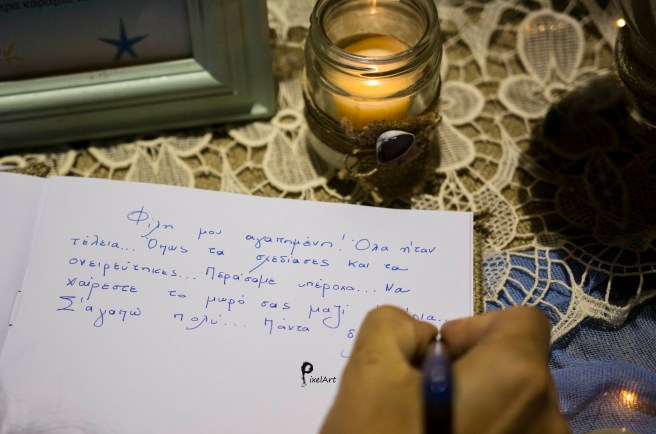 Φίλη μου αγαπημένη! Όλα ήταν
τέλεια... Όπως τα σχεδίασες και τα
ονειρεύτηκες... Περάσαμε υπέροχα... Να
χαίρεστε το μωρό σας μαζί
Σ'αγαπώ πολύ... Πάντα
PixelArt